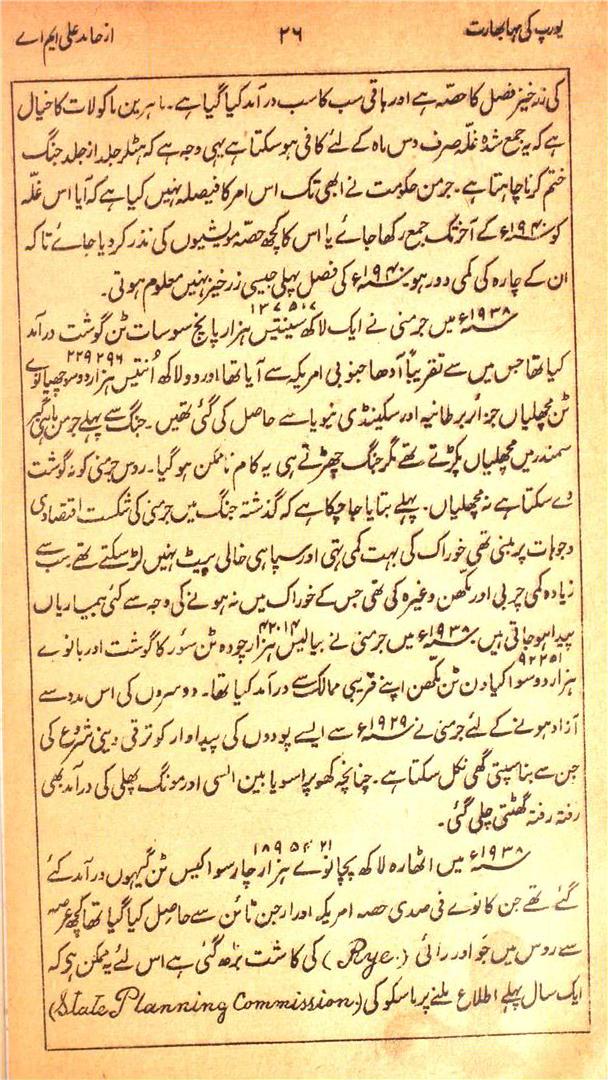 یورپ کی مہابھارت ۲۶ از حامد علی ایم اے
کی زرخیز فصل کا حصہ ہے اور باقی سب کا سب درآمد کیا گیا ہے۔ ماہرین ماکولات کا خیال
ہے کہ یہ جمع شدہ غلّہ صرف دس ماہ کے لئے کافی ہو سکتا ہے یہی وجہ ہے کہ ہٹلر جلد از جلد جنگ
ختم کرنا چاہتا ہے۔ جرمن حکومت نے ابھی تک اس امر کا فیصلہ نہیں کیا ہے کہ آیا اس غلّہ
کو ۱۹۴۰ء کے آخر تک جمع رکھا جائے یا اس کا کچھ حصہ مویشیوں کی نذر کر دیا جائے تاکہ
ان کے چارہ کی کمی دور ہو۔ ۱۹۴۰ء کی فصل پہلی جیسی زرخیز نہیں معلوم ہوتی۔
۱۹۳۸ء میں جرمنی نے ایک لاکھ سینتیس ہزار پانچ سو سات ۱۳۷۵۰۷ ٹن گوشت درآمد
کیا تھا جس میں سے تقریباً آدھا جنوبی امریکہ سے آیا تھا اور دو لاکھ اُنتیس ہزار دو سو چھیانوے ۲۲۹۲۹۶
ٹن مچھلیاں جزائر برطانیہ اور سکینڈی نیویا سے حاصل کی گئی تھیں۔ جنگ سے پہلے جرمن ماہی گیر
سمندر میں مچھلیاں پکڑتے تھے مگر جنگ چھڑتے ہی یہ کام ناممکن ہو گیا۔ روس جرمنی کو نہ گوشت
دے سکتا ہے نہ مچھلیاں۔ پہلے بتایا جا چکا ہے کہ گذشتہ جنگ میں جرمنی کی شکست اقتصادی
وجوہات پر مبنی تھی خوراک کی بہت کمی تھی اور سپاہی خالی پیٹ نہیں لڑ سکتے تھے سب سے
زیادہ کمی چربی اور مکھن وغیرہ کی تھی جس کے خوراک میں نہ ہونے کی وجہ سے کئی بیماریاں
پیدا ہو جاتی ہیں۔ ۱۹۳۸ء میں جرمنی نے بیالیس ہزار چودہ ۴۲۰۱۴ ٹن سؤر کا گوشت اور بانوے
ہزار دو سو اکیاون ۹۲۲۵۱ ٹن مکھن اپنے قریبی ممالک سے درآمد کیا تھا۔ دوسروں کی اس مدد سے
آزاد ہونے کے لئے جرمنی نے ۱۹۲۹ء سے ایسے پودوں کی پیداوار کو ترقی دینی شروع کی
جن سے بناسپتی گھی نکل سکتا ہے۔ چنانچہ کھوپرا سویا بین السی اور مونگ پھلی کی درآمد بھی
رفتہ رفتہ گھٹتی چلی گئی۔
۱۹۳۸ء میں اٹھارہ لاکھ پچانوے ہزار چار سو اکیس ۱۸۹۵۴۲۱ ٹن گیہوں درآمد کئے
گئے تھے جن کا نوے فی صدی حصہ امریکہ اور ارجن ٹائن سے حاصل کیا گیا تھا کچھ عرصہ
سے روس میں جَو اور رائی (Rye) کی کاشت بڑھ گئی ہے اس لئے یہ ممکن ہے کہ
ایک سال پہلے اطلاع ملنے پر ماسکو کی (State Planning Commission)